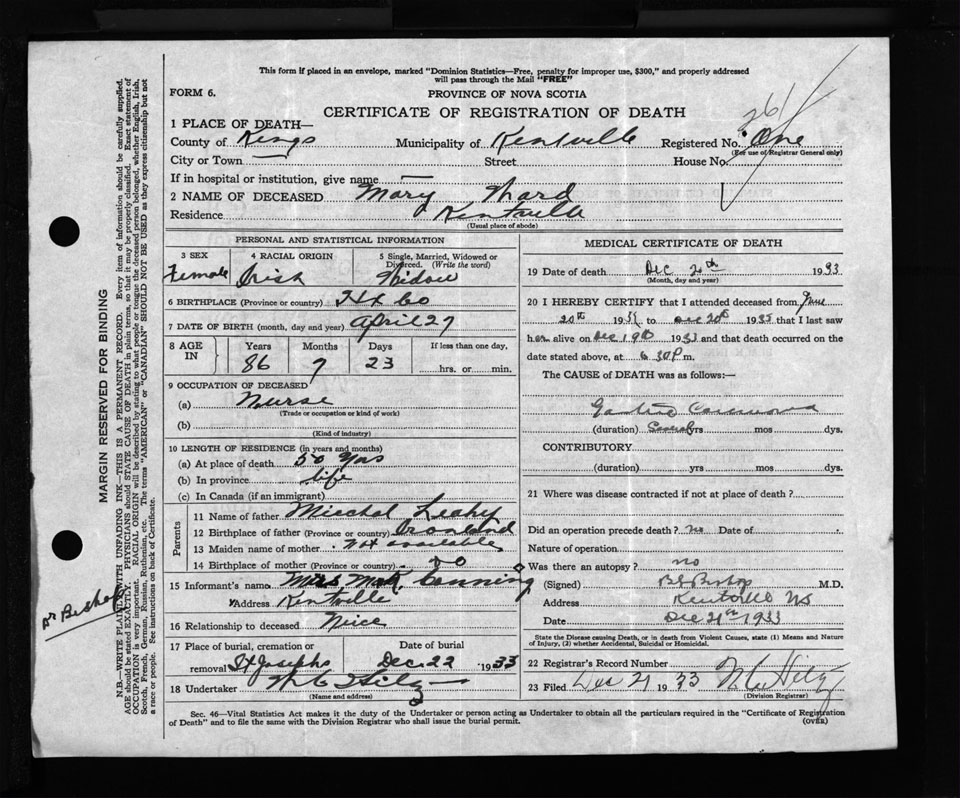 This form if placed in an envelope, marked "Dominion Statistics—Free, penalty for improper use, $300," and properly addressed
will pass through the Mail "FREE"
FORM 6.
PROVINCE OF NOVA SCOTIA
CERTIFICATE OF REGISTRATION OF DEATH
261
1 PLACE OF DEATH—
County of Kings Municipality of Kentville Registered No. One
(For use of Registrar General only)
City or Town — Street House No.
If in hospital or institution, give name —
2 NAME OF DECEASED Mary Ward
Residence Kentville
(Usual place of abode)
PERSONAL AND STATISTICAL INFORMATION
3 SEX 4 RACIAL ORIGIN 5 Single, Married, Widowed or Divorced. (Write the word)
Female Irish Widow
6 BIRTHPLACE (Province or country) Hx Co
7 DATE OF BIRTH (month, day and year) April 27
8 AGE IN Years Months Days If less than one day,
86 7 23 hrs. or min.
9 OCCUPATION OF DECEASED
(a) Nurse
(Trade or occupation or kind of work)
(b)
(Kind of industry)
10 LENGTH OF RESIDENCE (in years and months)
(a) At place of death 50 yrs
(b) In province life
(c) In Canada (if an immigrant)
Parents
11 Name of father Miechal Leahy
12 Birthplace of father (Province or country)
13 Maiden name of mother Not available
14 Birthplace of mother (Province or country) Do
15 Informant's name Canning
Address Kentville
16 Relationship to deceased Niece
17 Place of burial, cremation or Date of burial
removal St Josephs Dec. 22 1933
18 Undertaker W C Hiltz
(Name and address)
MEDICAL CERTIFICATE OF DEATH
19 Date of death Dec 20th 1933
(Month, day and year)
20 I HEREBY CERTIFY that I attended deceased from June
20th 193 to Dec 20th 193 that I last saw
her alive on Dec 19th 1933 and that death occurred on the
date stated above, at 6.30 P.m.
The CAUSE of DEATH was as follows:—
Gastric Carcinoma
(duration) yrs mos dys.
CONTRIBUTORY
(duration) yrs mos dys.
21 Where was disease contracted if not at place of death?
Did an operation precede death? No Date of
Nature of operation
Was there an autopsy? no
(Signed) B E Bishop M.D.
Address Kentville NS
Date Dec 21st 1933
State the Disease causing Death, or in death from Violent Causes, state (1) Means and Nature
of Injury, (2) whether Accidental, Suicidal or Homicidal.
22 Registrar's Record Number
23 Filed Dec 21 1933 W C Hiltz
(Division Registrar)
Sec. 46—Vital Statistics Act makes it the duty of the Undertaker or person acting as Undertaker to obtain all the particulars required in the "Certificate of Registration
of Death" and to file the same with the Division Registrar who shall issue the burial permit.
(over)
MARGIN RESERVED FOR BINDING
N.B.—WRITE PLAINLY WITH UNFADING INK—THIS IS A PERMANENT RECORD. Every item of information should be carefully supplied.
AGE should be stated EXACTLY. PHYSICIANS should STATE CAUSE OF DEATH in plain terms, so that it may be properly classified. Exact statement of
OCCUPATION is very important. RACIAL ORIGIN will be described by stating to what people or tongue the deceased person belonged, whether English, Irish,
Scotch, French, German, Russian, Ruthenian, etc. The terms "AMERICAN" or "CANADIAN" SHOULD NOT BE USED as they express citizenship but not
a race or people. See instructions on back of Certificate.
Dr Bishop